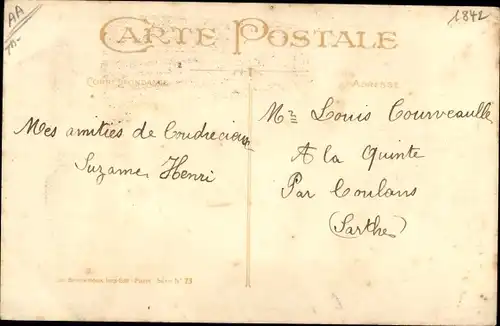 AA
1842
CARTE POSTALE
CORRESPONDANCE
ADRESSE
Mes amitiés de Coudrecieux
Suzanne Henri
Mr Louis Courveaulle
A la Quinte
Par Coulans
(Sarthe)
Paris Série N° 23